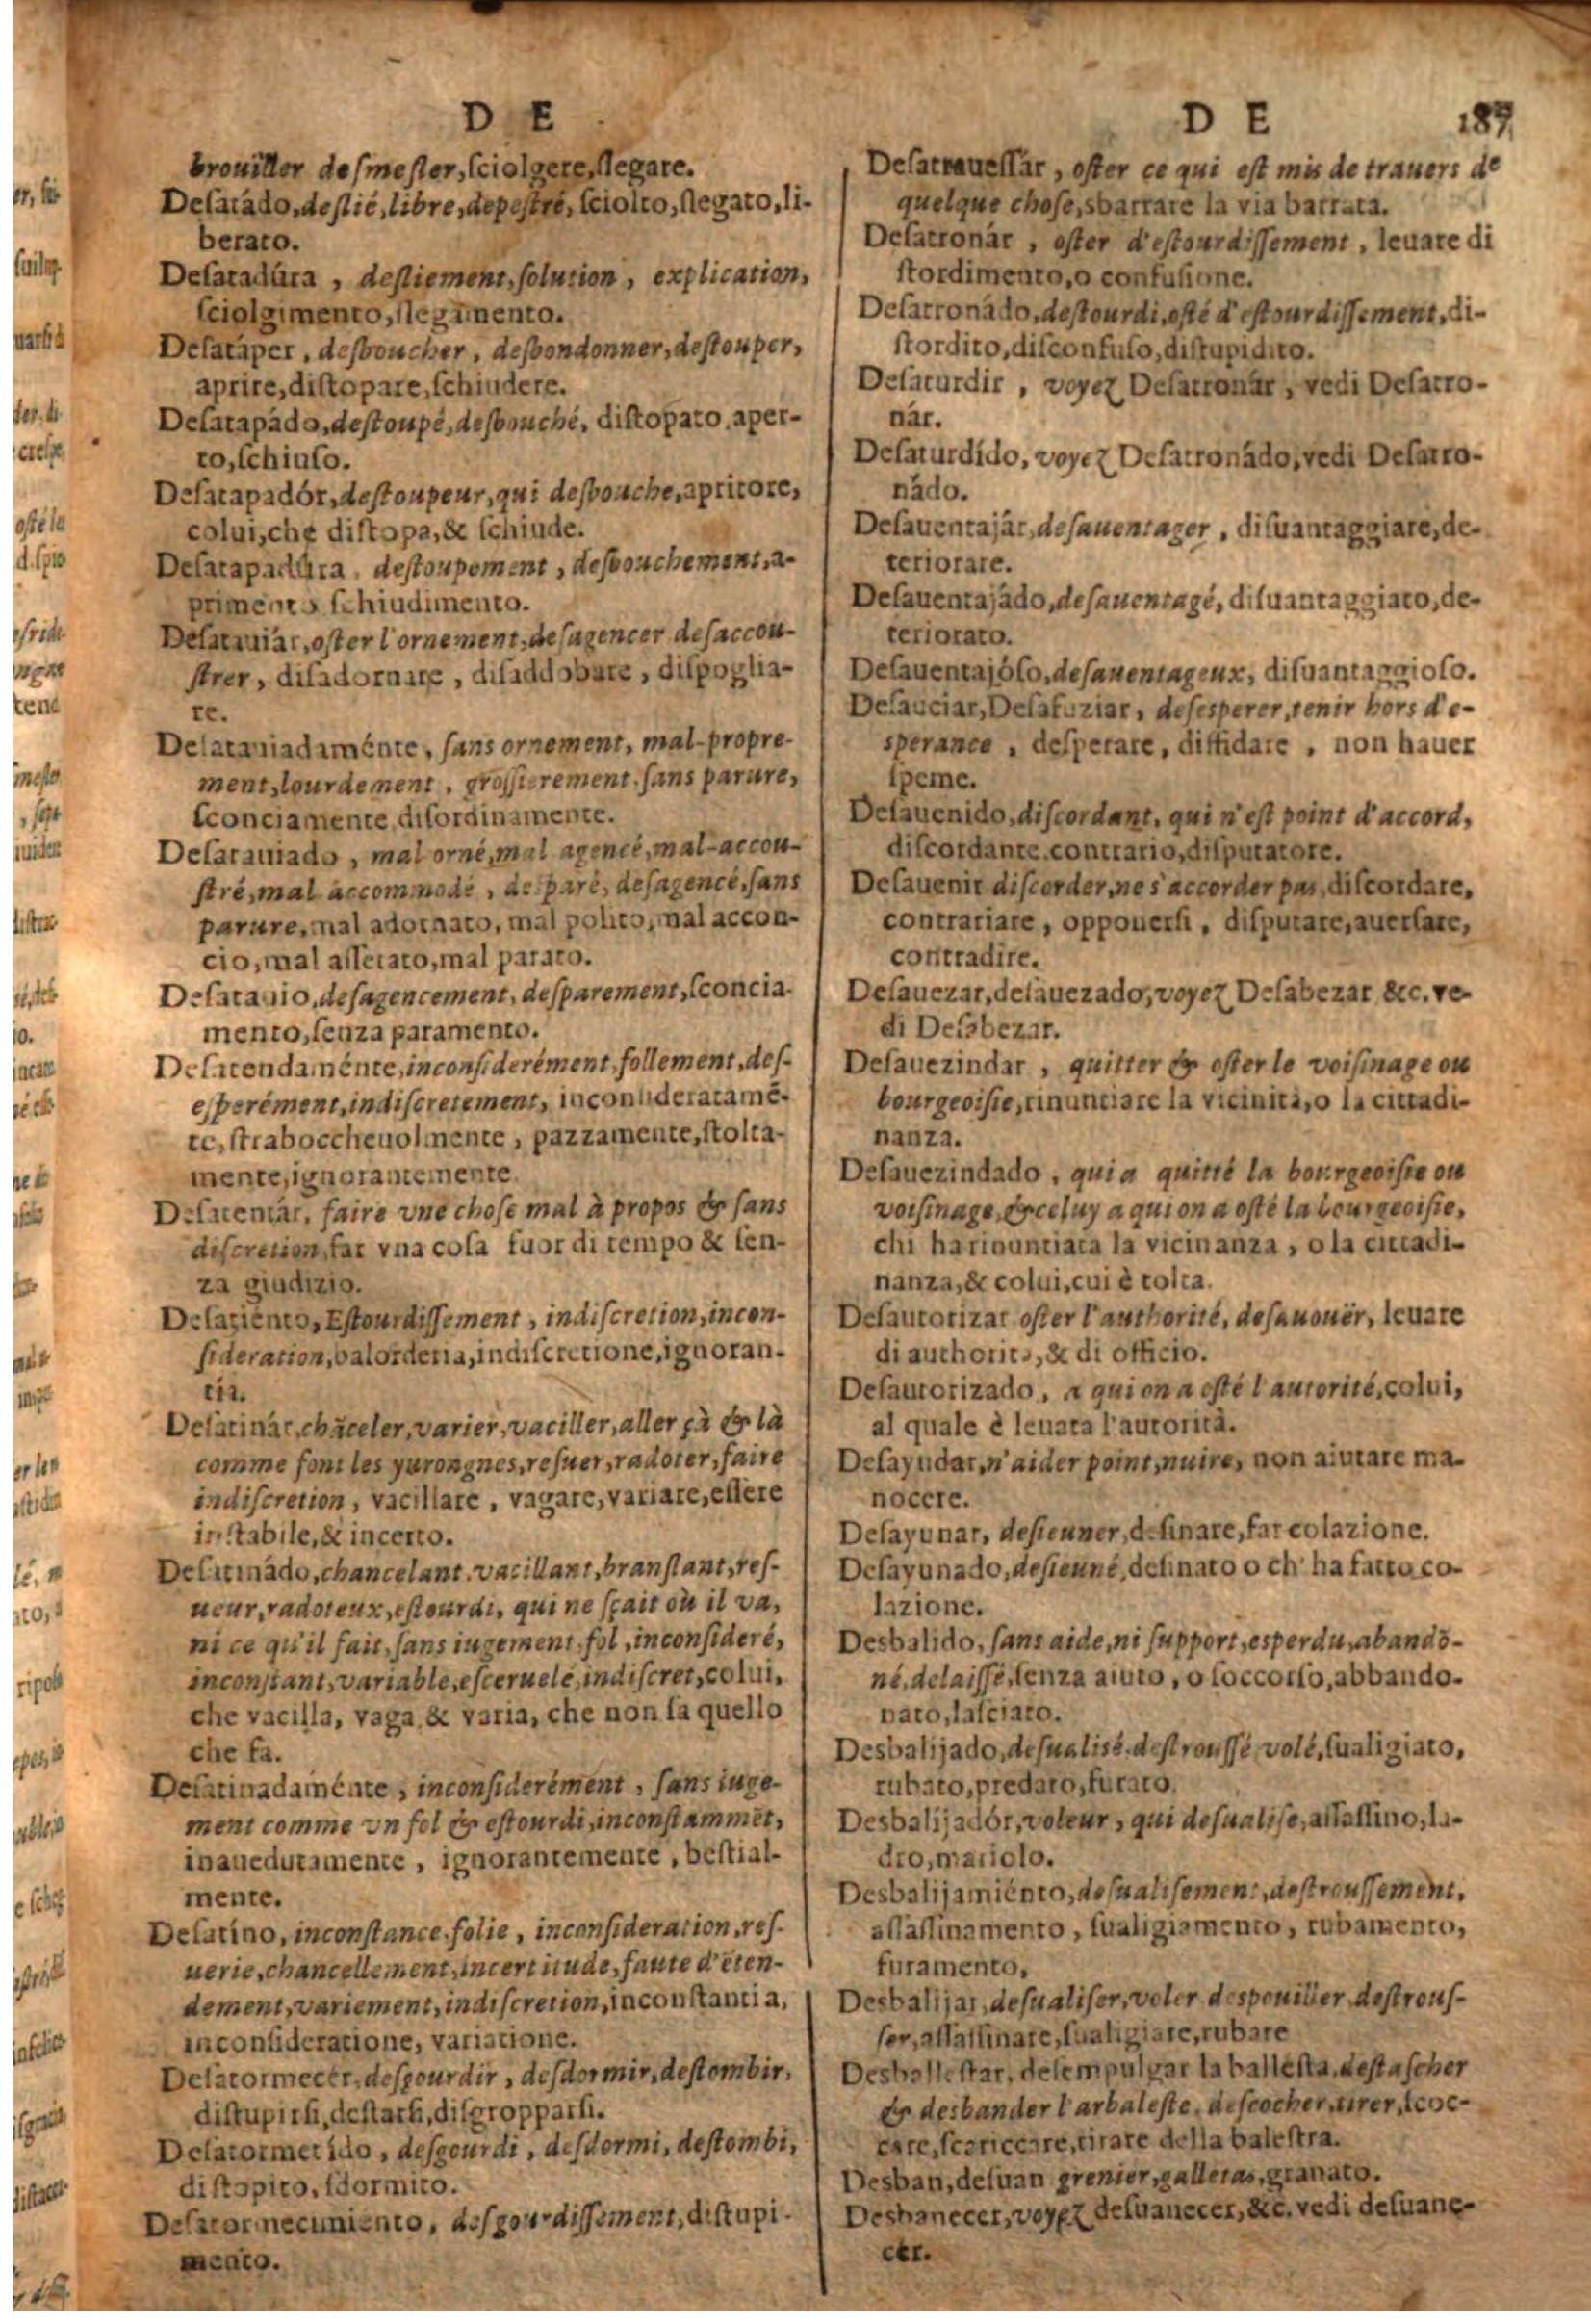 D E
brouiller desmesler,sciolgere,slegare.
Desatádo,deslié,libre,depestré, sciolto,slegato,li-
berato.
Desatadúra , desliement,solution , explication,
sciolgimento,slegamento.
Desatáper , desboucher , desbondonner,destouper,
aprire,distopare,schiudere.
Desatapádo,destoupé,desbouché, distopato,aper-
to,schiuso.
Desatapadór,destoupeur,qui desbouche,apritore,
colui,che distopa,& schiude.
Desatapadúra, destoupement , desbouchement,a-
primento schiudimento.
Desatauiár,oster l'ornement,desagencer desaccou-
strer , disadornare , disaddobare , dispoglia-
re.
Desatauiadaménte, sans ornement, mal-propre-
ment,lourdement , grossierement,sans parure,
sconciamente,disordinamente.
Desatauiado , mal orné,mal agencé,mal-accou-
stré,mal accommodé , desparé, desagencé,sans
parure,mal adornato, mal polito,mal accon-
cio,mal assetato,mal parato.
Desatauio,desagencement, desparement,sconcia-
mento,senza paramento.
Desatendaménte,inconsiderément,follement,des-
esperément,indiscretement, inconsideratamē-
te,straboccheuolmente , pazzamente,stolta-
mente,ignorantemente.
Desatentár, faire vne chose mal à propos & sans
discretion,far vna cosa fuor di tempo & sen-
za giudizio.
Desatiénto, Estourdissement , indiscretion,incon-
sideration,balorderia,indiscretione,ignoran-
tia.
Desatinár,chāceler,varier,vaciller,aller çà & là
comme font les yurongnes,resuer,radoter,faire
indiscretion , vacillare , vagare,variare,essere
instabile,& incerto.
Desatinádo,chancelant,vacillant,branslant,res-
ueur,radoteux,estourdi, qui ne sçait où il va,
ni ce qu'il fait,sans iugement,fol,inconsideré,
inconstant,variable,esceruelé,indiscret,colui,
che vacilla, vaga,& varia, che non sa quello
che fa.
Desatinadaménte , inconsiderément , sans iuge-
ment comme vn fol & estourdi,inconstammēt,
inauedutamente , ignorantemente , bestial-
mente.
Desatíno, inconstance,folie , inconsideration,res-
uerie,chancellement,incertitude,faute d'ēten-
dement,variement,indiscretion,inconstantia,
inconsideratione, variatione.
Desatormecér,desgourdir , desdormir,destombir,
distupirsi,destarsi,disgropparsi.
Desatormecído , desgourdi , desdormi, destombi,
distopito, sdormito.
Desatormecimiento, desgourdissement,distupi-
mento.
D E 187
Desatrauessár , oster ce qui est mis de trauers de
quelque chose,sbarrare la via barrata.
Desatronár , oster d'estourdissement , leuare di
stordimento,o confusione.
Desatronádo,destourdi,osté d'estourdissement,di-
stordito,disconfuso,distupidito.
Desaturdir , voyez Desatronár , vedi Desatro-
nár.
Desaturdído, voyez Desatronádo,vedi Desatro-
nádo.
Desauentajár,desauentager , disuantaggiare,de-
teriorare.
Desauentajádo,desauentagé, disuantaggiato,de-
teriorato.
Desauentajóso,desauentageux, disuantaggioso.
Desauciar,Desafuziar, desesperer,tenir hors d'e-
sperance , desperare, diffidare , non hauer
speme.
Desauenido,discordant, qui n'est point d'accord,
discordante,contrario,disputatore.
Desauenir discorder,ne s'accorder pas,discordare,
contrariare , opponersi , disputare,auersare,
contradire.
Desauezar,desauezado,voyez Desabezar &c. ve-
di Desabezar.
Desauezindar , quitter & oster le voisinage ou
bourgeoisie,rinuntiare la vicinità,o la cittadi-
nanza.
Desauezindado , qui a quitté la bourgeoisie ou
voisinage,& celuy a qui on a osté la bourgeoisie,
chi ha rinuntiata la vicinanza , o la cittadi-
nanza,& colui,cui è tolta.
Desautorizar oster l'authorité, desauouër, leuare
di authorita,& di officio.
Desautorizado , a qui on a osté l'autorité,colui,
al quale è leuata l'autorità.
Desayudar,n'aider point,nuire, non aiutare ma-
nocere.
Desayunar, desieuner,desinare,far colazione.
Desayunado,desieuné,desinato o ch' ha fatto co-
lazione.
Desbalido, sans aide,ni support,esperdu,abandō-
né,delaissé,senza aiuto , o soccorso,abbando-
nato,lasciato.
Desbalijado,desualisé,destroussé,volé,sualigiato,
rubato,predato,furato.
Desbalijadór,voleur , qui desualise,assassino,la-
dro,mariolo.
Desbalijamiénto,desualisement,destroussement,
assassinamento , sualigiamento , rubamento,
furamento,
Desbalijar,desualiser,voler despouiller,destrous-
ser,assassinare,sualigiare,rubare
Desballestar, desempulgar la ballesta,destascher
& desbander l'arbaleste, descocher,tirer,scoc-
care,scariccare,tirare della balestra.
Desban,desuan grenier,galletas,granato.
Desbanecer,voyez desuanecer,&c. vedi desuane-
cer.